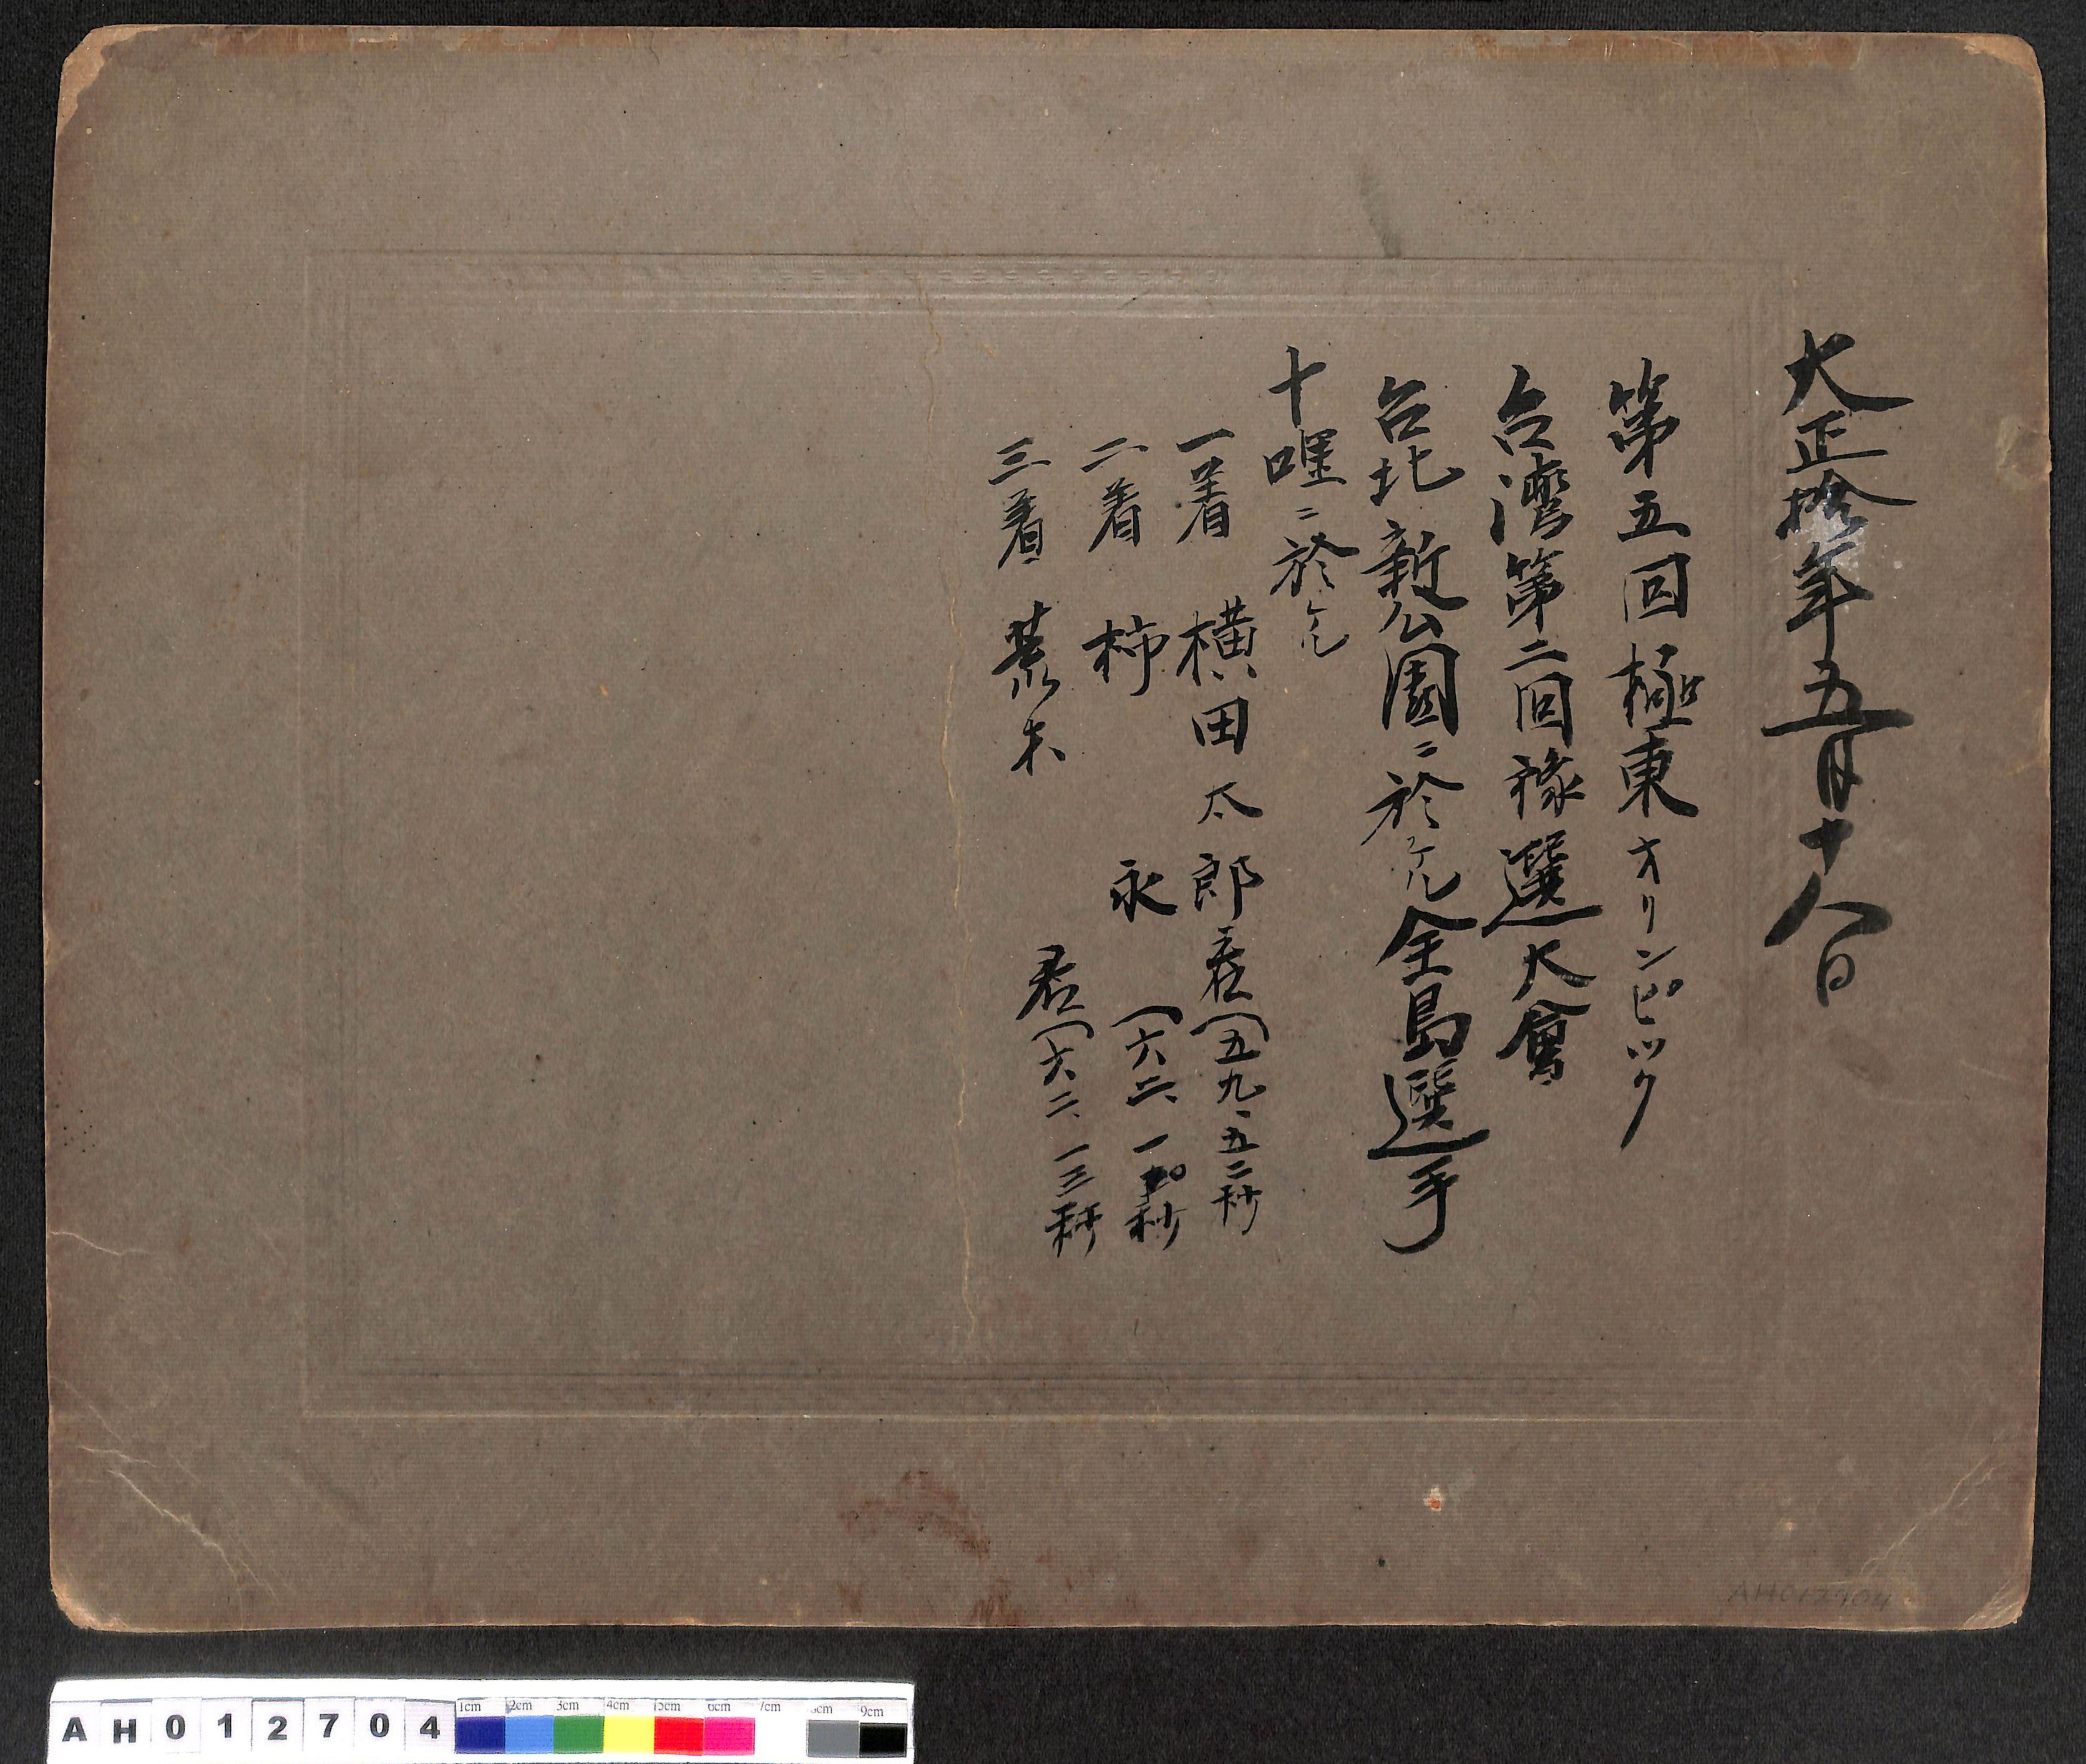 大正拾年五月十八日
第五回極東オリンピック
台湾第二回豫選大會
台北新公園ニ於ケル全島選手
十哩ニ於ケル
一着 横田太郎君(五九、五二秒
二着 柿 永 (六二、一 秒
三着 荒木 君(六二、一三秒
AH012704
AH012704
1cm 2cm 3cm 4cm 5cm 6cm 7cm 8cm 9cm